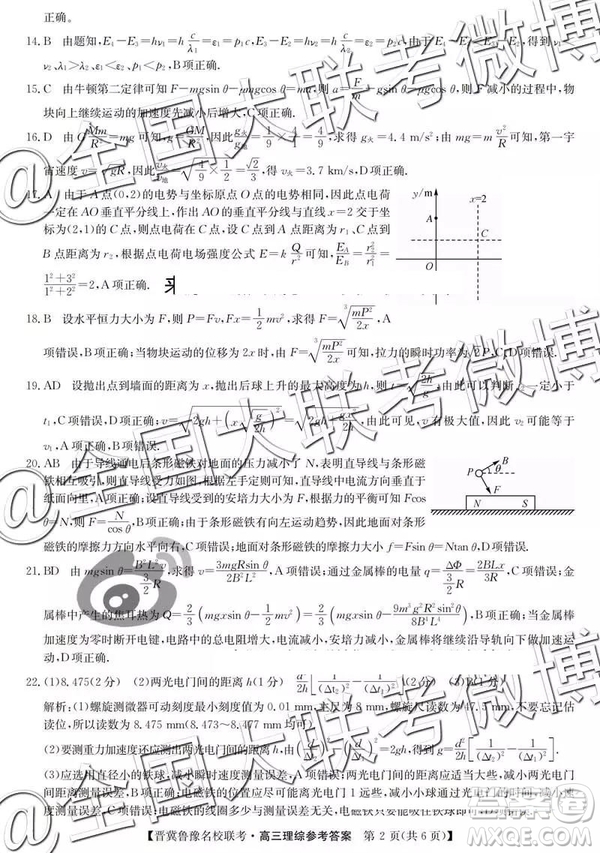 正确。
14.B 由题知,E₄-E₃=hν₁=h c/λ₁=ε₁=p₁c,
由于E₄-E₃<E₃-E₂,得到ν₁<ν₂、λ₁>λ₂、ε₁<ε₂、p₁<p₂,B项正确。
15.C 由牛顿第二定律可知F-mgsin θ-μmgcos θ=ma,则a=F/m-gsin θ-μgcos θ,则F减小的过程中,物
块向上继续运动的加速度先减小后增大,C项正确。
16.D 由G Mm/R²=mg可知
求得g火=4.4 m/s²;由
可知,第一宇
宙速度
因此
则v火=3.7 km/s,D项正确。
17.A 由于A点(0,2)的电势与坐标原点O点的电势相同,因此点电荷
一定在AO垂直平分线上,作出AO的垂直平分线与直线x=2交于坐
标为(2,1)的C点,设C点到A点和B点距离为r₁、C点到
B点距离为r₂,根据点电荷电场强度公式E=k Q/r²可知E_A/E_B=r₂²/r₁²=
(1²+3²)/(1²+2²)=2,A项正确。
y/m
x=2
A
C
O
18.B 设水平恒力大小为F,则P=Fv,Fx=1/2 mv²,求得F=∛(mP²/2x),A
项错误,B项正确;当物块运动的位移为2x时,由F=∛(mP²/2x)可知,拉力的瞬时功率为
C、D项错误。
19.AD 设抛出点到墙面的距离为x,抛出后球上升的高度为h,
由此可以判断t₂一定小于
t₁,C项错误,D项正确;v=√(2gh+(x√(g/2h))²)
由此可见,v有极大值,因此v₂可能等于
v₁,A项正确。
20.AB 由于导线通电后条形磁铁对地面的压力减小了N,表明直导线与条形
磁铁相互吸引,则直导线受力如图。根据左手定则可知,直导线中电流方向垂直
纸面向里,A项正确;设直导线受到的安培力大小为F,根据力的平衡可知Fcos
θ=N,则F=N/cos θ,B项正确;由于条形磁铁有向左运动趋势,因此地面对条形
磁铁的摩擦力方向水平向右,C项错误;地面对条形磁铁的摩擦力大小f=Fsin θ=Ntan θ,D项错误。
B
P
θ
F
N S
21.BD 由mgsin θ=B²L²v/(3/2 R),求得v=3mgRsin θ/2B²L²,A项错误;通过金属棒的电量q=ΔΦ/(3/2 R)=2BLx/3R,C项错误;金
属棒中产生的焦耳热为Q=2/3(mgxsin θ-1/2 mv²)=2/3(mgxsin θ-9m³g²R²sin²θ/8B⁴L⁴),B项正确;当金属棒
加速度为零时断开电键,电路中的总电阻增大,安培力减小,因此金属棒将继续沿导轨向下做加速运动,D项
正确。
22.(1)8.475(2分) (2)两光电门间的距离h(1分) d²/2h[1/(Δt₂)²-1/(Δt₁)²](2分) (3)A(1分)
解析:(1)螺旋测微器可动刻度最小值为0.01 mm,主尺为8 mm,螺旋尺读数为47.5 mm,不要忘记估位,
所以读数为8.475 mm(8.473~8.477 mm,均可)。
(2)要测重力加速度还应测出两光电门间的距离h,
=2gh,得到g=d²/2h[1/(Δt₂)²-1/(Δt₁)²]。
(3)应选用直径小的铁球,减小测量误差,A项正确;两光电门间的距离应适当大些,减小两光电门间的距离
会增大测量误差,B项错误;电磁铁离光电门1远些,小球经过光电门的速度会大些,
测量误差,C项错误;电磁铁的线圈多少对实验没有影响,D项错误。
【晋冀鲁豫名校联考·高三理综参考答案 第2页(共6页)】
@全国大联考微博
@全国大联考微博